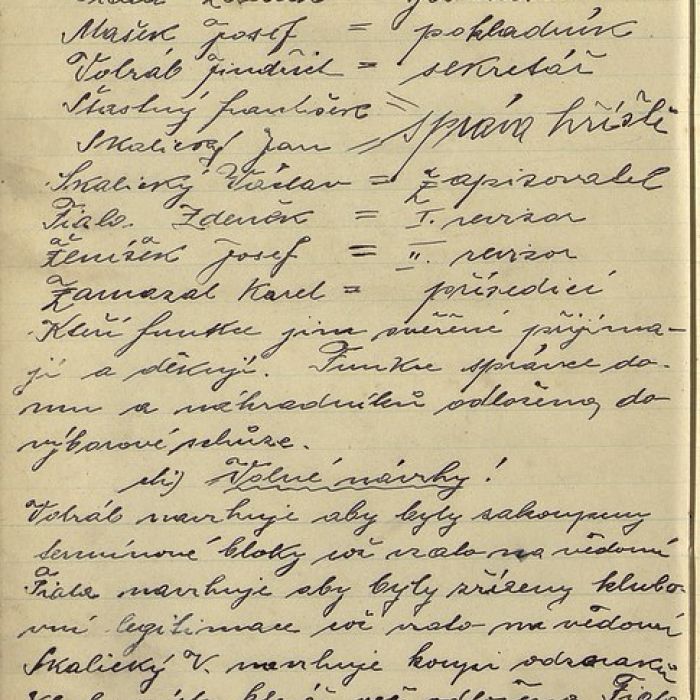 Mašek Josef = pokladník
Votráb Jindřich = sekretář
Šťastný František =
Skalický Jan = správa hříště
Skalický Václav = Zapisovatel
Fiala Zdeněk = I. revisor
Ženíšek Josef = II. revisor
Zamazal Karel = přísedící
Kteří funkce jim svěřené přijíma-
jí a děkují. Funkce správce do-
mu a náhradníků odloženy do
výborové schůze.
Volné návrhy!
Votráb navrhuje aby byly zakoupeny
termínové bloky což vzato na vědomí
Fiala navrhuje aby byly zřízeny klubo-
vní legitimace což vzato na vědomí
Skalický V. navrhuje koupi odznaků